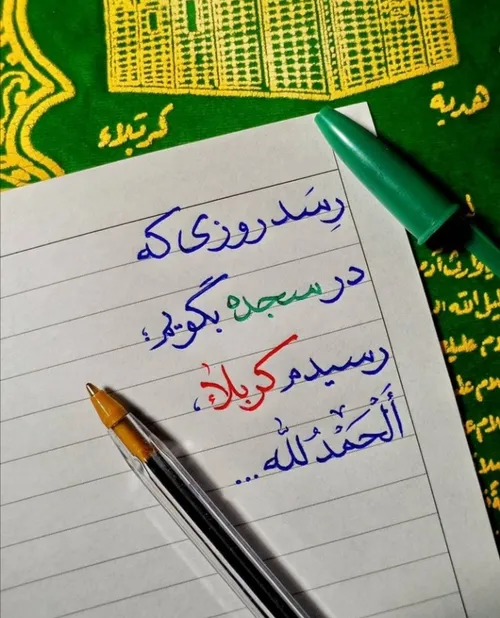 هدية
كربلاء
رِسَد روزی که
در سجده بگویم؛
رسیدم کربلاء،
أَلْحَمْدُلله...